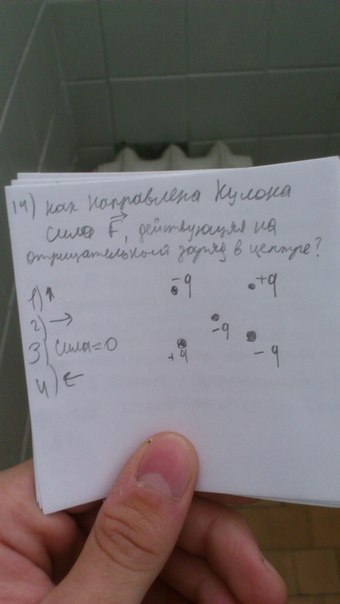 14) Как направлена Кулона
сила F, действующая на
отрицательный заряд в центре?
1) ↑
2) →
3) Сила=0
4) ←
-q +q
-q
+q -q